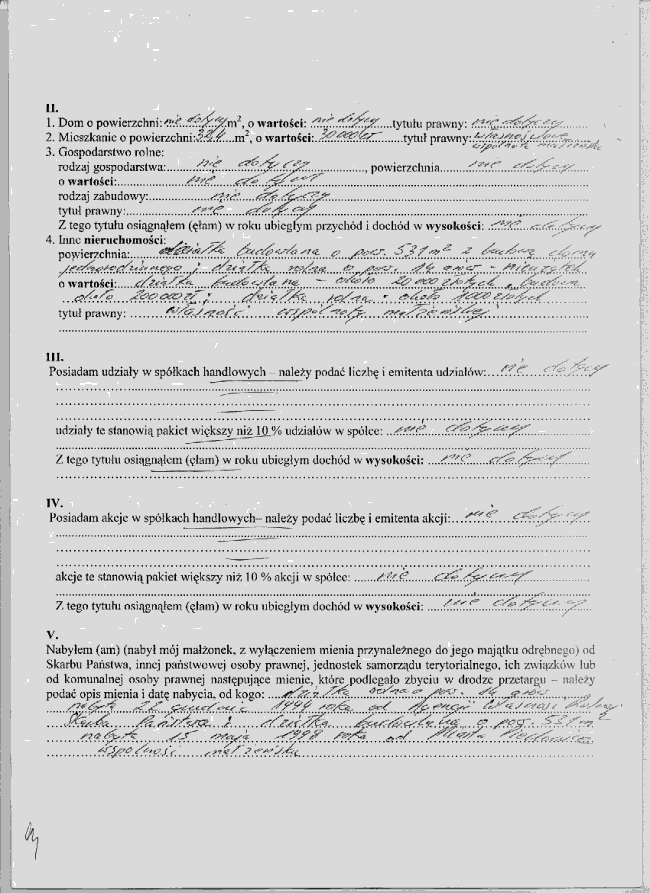 II.
1. Dom o powierzchni: nie dotyczy m², o wartości: nie dotyczy tytułu prawny: nie dotyczy
2. Mieszkanie o powierzchni: m², o wartości: 30 000 zł tytuł prawny: własnościowe
wspólnota małżeńska
3. Gospodarstwo rolne:
rodzaj gospodarstwa: nie dotyczy, powierzchnia nie dotyczy
o wartości: nie dotyczy
rodzaj zabudowy: nie dotyczy
tytuł prawny: nie dotyczy
Z tego tytułu osiągnąłem (ęłam) w roku ubiegłym przychód i dochód w wysokości: nie dotyczy
4. Inne nieruchomości:
powierzchnia: działka budowlana o pow. 531 m² z budową domu
jednorodzinnego; działka rolna o pow. 14 arów -
o wartości: działka budowlana - około 20 000 złotych, budowa
około 200 000 zł; działka rolna - około 1000 złotych
tytuł prawny: własność wspólnoty małżeńskiej
III.
Posiadam udziały w spółkach handlowych – należy podać liczbę i emitenta udziałów: nie dotyczy
udziały te stanowią pakiet większy niż 10 % udziałów w spółce: nie dotyczy
Z tego tytułu osiągnąłem (ęłam) w roku ubiegłym dochód w wysokości: nie dotyczy
IV.
Posiadam akcje w spółkach handlowych– należy podać liczbę i emitenta akcji: nie dotyczy
akcje te stanowią pakiet większy niż 10 % akcji w spółce: nie dotyczy
Z tego tytułu osiągnąłem (ęłam) w roku ubiegłym dochód w wysokości: nie dotyczy
V.
Nabyłem (am) (nabył mój małżonek, z wyłączeniem mienia przynależnego do jego majątku odrębnego) od
Skarbu Państwa, innej państwowej osoby prawnej, jednostek samorządu terytorialnego, ich związków lub
od komunalnej osoby prawnej następujące mienie, które podlegało zbyciu w drodze przetargu – należy
podać opis mienia i datę nabycia, od kogo: działka rolna o pow. 14 arów
nabyta 22 grudnia roku od Agencji Własności Rolnej
Skarbu Państwa; działka budowlana o pow. 531 m²
nabyta 15 maja 1998 roku od Miasta
wspólność małżeńska